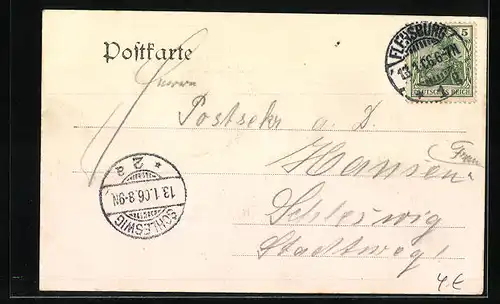 Postkarte
FLENSBURG
13.1.06.6-7N.
5
DEUTSCHES REICH
Herrn
Postsekr a. D.
Hansen
(Frau
Schleswig
Stadtweg
* 2 a
13.1.06.8-9N.
SCHLESWIG
4,€